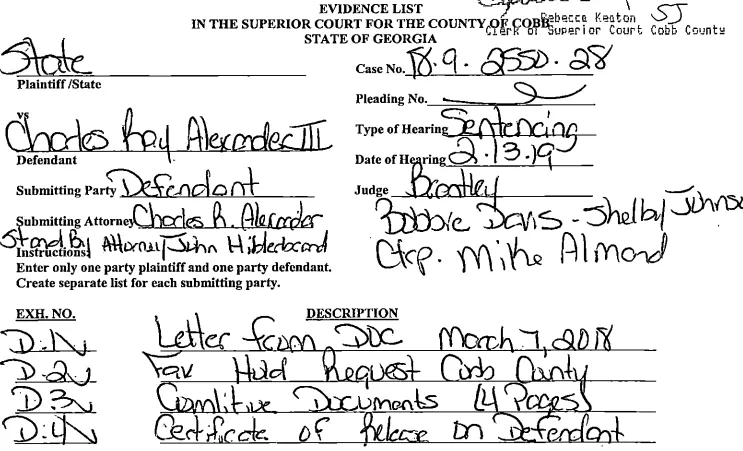 EVIDENCE LIST
IN THE SUPERIOR COURT FOR THE COUNTY OF COBB
Rebecca Keaton SJ
Clerk of Superior Court Cobb County
STATE OF GEORGIA
State
Plaintiff /State
Case No. 18.9.2550.28
Pleading No.
vs
Charles Ray Alexander III
Defendant
Type of Hearing Sentencing
Date of Hearing 2.13.19
Submitting Party Defendant
Judge Brantley
Submitting Attorney Charles R. Alexander
Bobbie Davis - Shelby Johns
Stand By Attorney John Hildebrand
Instructions:
Ctrp. Mike Almond
Enter only one party plaintiff and one party defendant.
Create separate list for each submitting party.
EXH. NO. DESCRIPTION
D.1 Letter from DOC March 7, 2018
D-2 Fax Hold Request Cobb County
D3 Documents (4 Pages)
D.4 Certificate of Release on Defendant